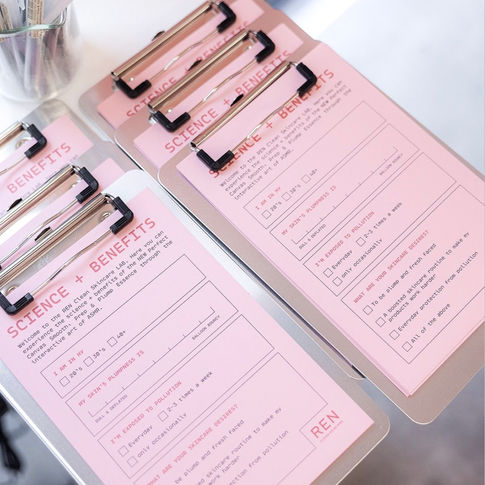 SCIENCE + BENEFITS
Welcome to the REN Clean Skincare LAB. Here you can
experience the science + benefits of the NEW Perfect
Canvas Smooth, Prep & Plump Essence through the
interactive art of ASMR.
I AM IN MY
20's 30's 40+
MY SKIN'S PLUMPNESS IS
DULL & DEFLATED
BALLOON BOUNCY
I'M EXPOSED TO POLLUTION
Everyday 2-3 times a week
only occasionally
WHAT ARE YOUR SKINCARE DESIRES?
To be plump and fresh faced
A boosted skincare routine to make my
products work harder
Everyday protection from pollution
All of the above
SCIENCE +
SCIENCE + BENEFITS
BENEFITS
SCIENCE + BENEFITS
Welcome to the REN Clean Skincare LAB. Here you can
experience the science + benefits of the NEW Perfect
Canvas Smooth, Prep & Plump Essence through the
interactive art of ASMR.
I AM IN MY
20's 30's 40+
MY SKIN'S PLUMPNESS IS
DULL & DEFLATED
BALLOON BOUNCY
I'M EXPOSED TO POLLUTION
Everyday 2-3 times a week
only occasionally
WHAT ARE YOUR SKINCARE DESIRES?
be plump and fresh faced
boosted skincare routine to make my
work harder
protection from pollution
REN